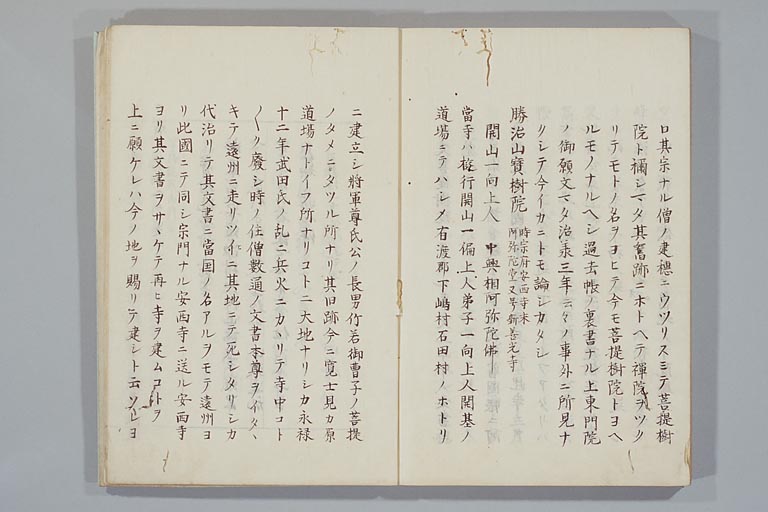 ロ其宗ナル僧ノ建穗ニウツリスミテ菩提樹
院ト稱シマタ其舊跡ニホトヘテ禪院ヲツク
リテモトノ名ヲヨヒテ今モ菩提樹院トヨヘ
ルモノナルヘシ過去帳ノ裏書ナル上東門院
ノ御願文マタ治承三年云々ノ事外ニ所見ナ
クシテ今イカニトモ論シカタシ
勝治山寶樹院 時宗府安西寺末
阿弥陀堂又号新善光寺
開山一向上人 中興相阿弥陀佛
當寺ハ遊行開山一偏上人弟子一向上人開基ノ
道場ニテハシメ有渡郡下嶋村石田村ノホトリ
ニ建立シ將軍尊氏公ノ長男竹若御曹子ノ菩提
ノタメニタツル所ナリ其旧跡今ニ寛士見カ原
道場ナトイフ所ナリコトニ大地ナリシカ永禄
十二年武田氏ノ乱ニ兵火ニカヽリテ寺中コト
〱ク廢シ時ノ住僧數通ノ文書本尊ヲイタヽ
キテ遠州ニ走リツイニ其地ニテ死シタリシカ
代治リテ其文書ニ當国ノ名アルヲモテ遠州ヨ
リ此國ニテ同シ宗門ナル安西寺ニ送ル安西寺
ヨリ其文書ヲサヽケテ再ヒ寺ヲ建ムコトヲ
上ニ願ケレハ今ノ地ヲ賜リテ建シト云ソレヨ